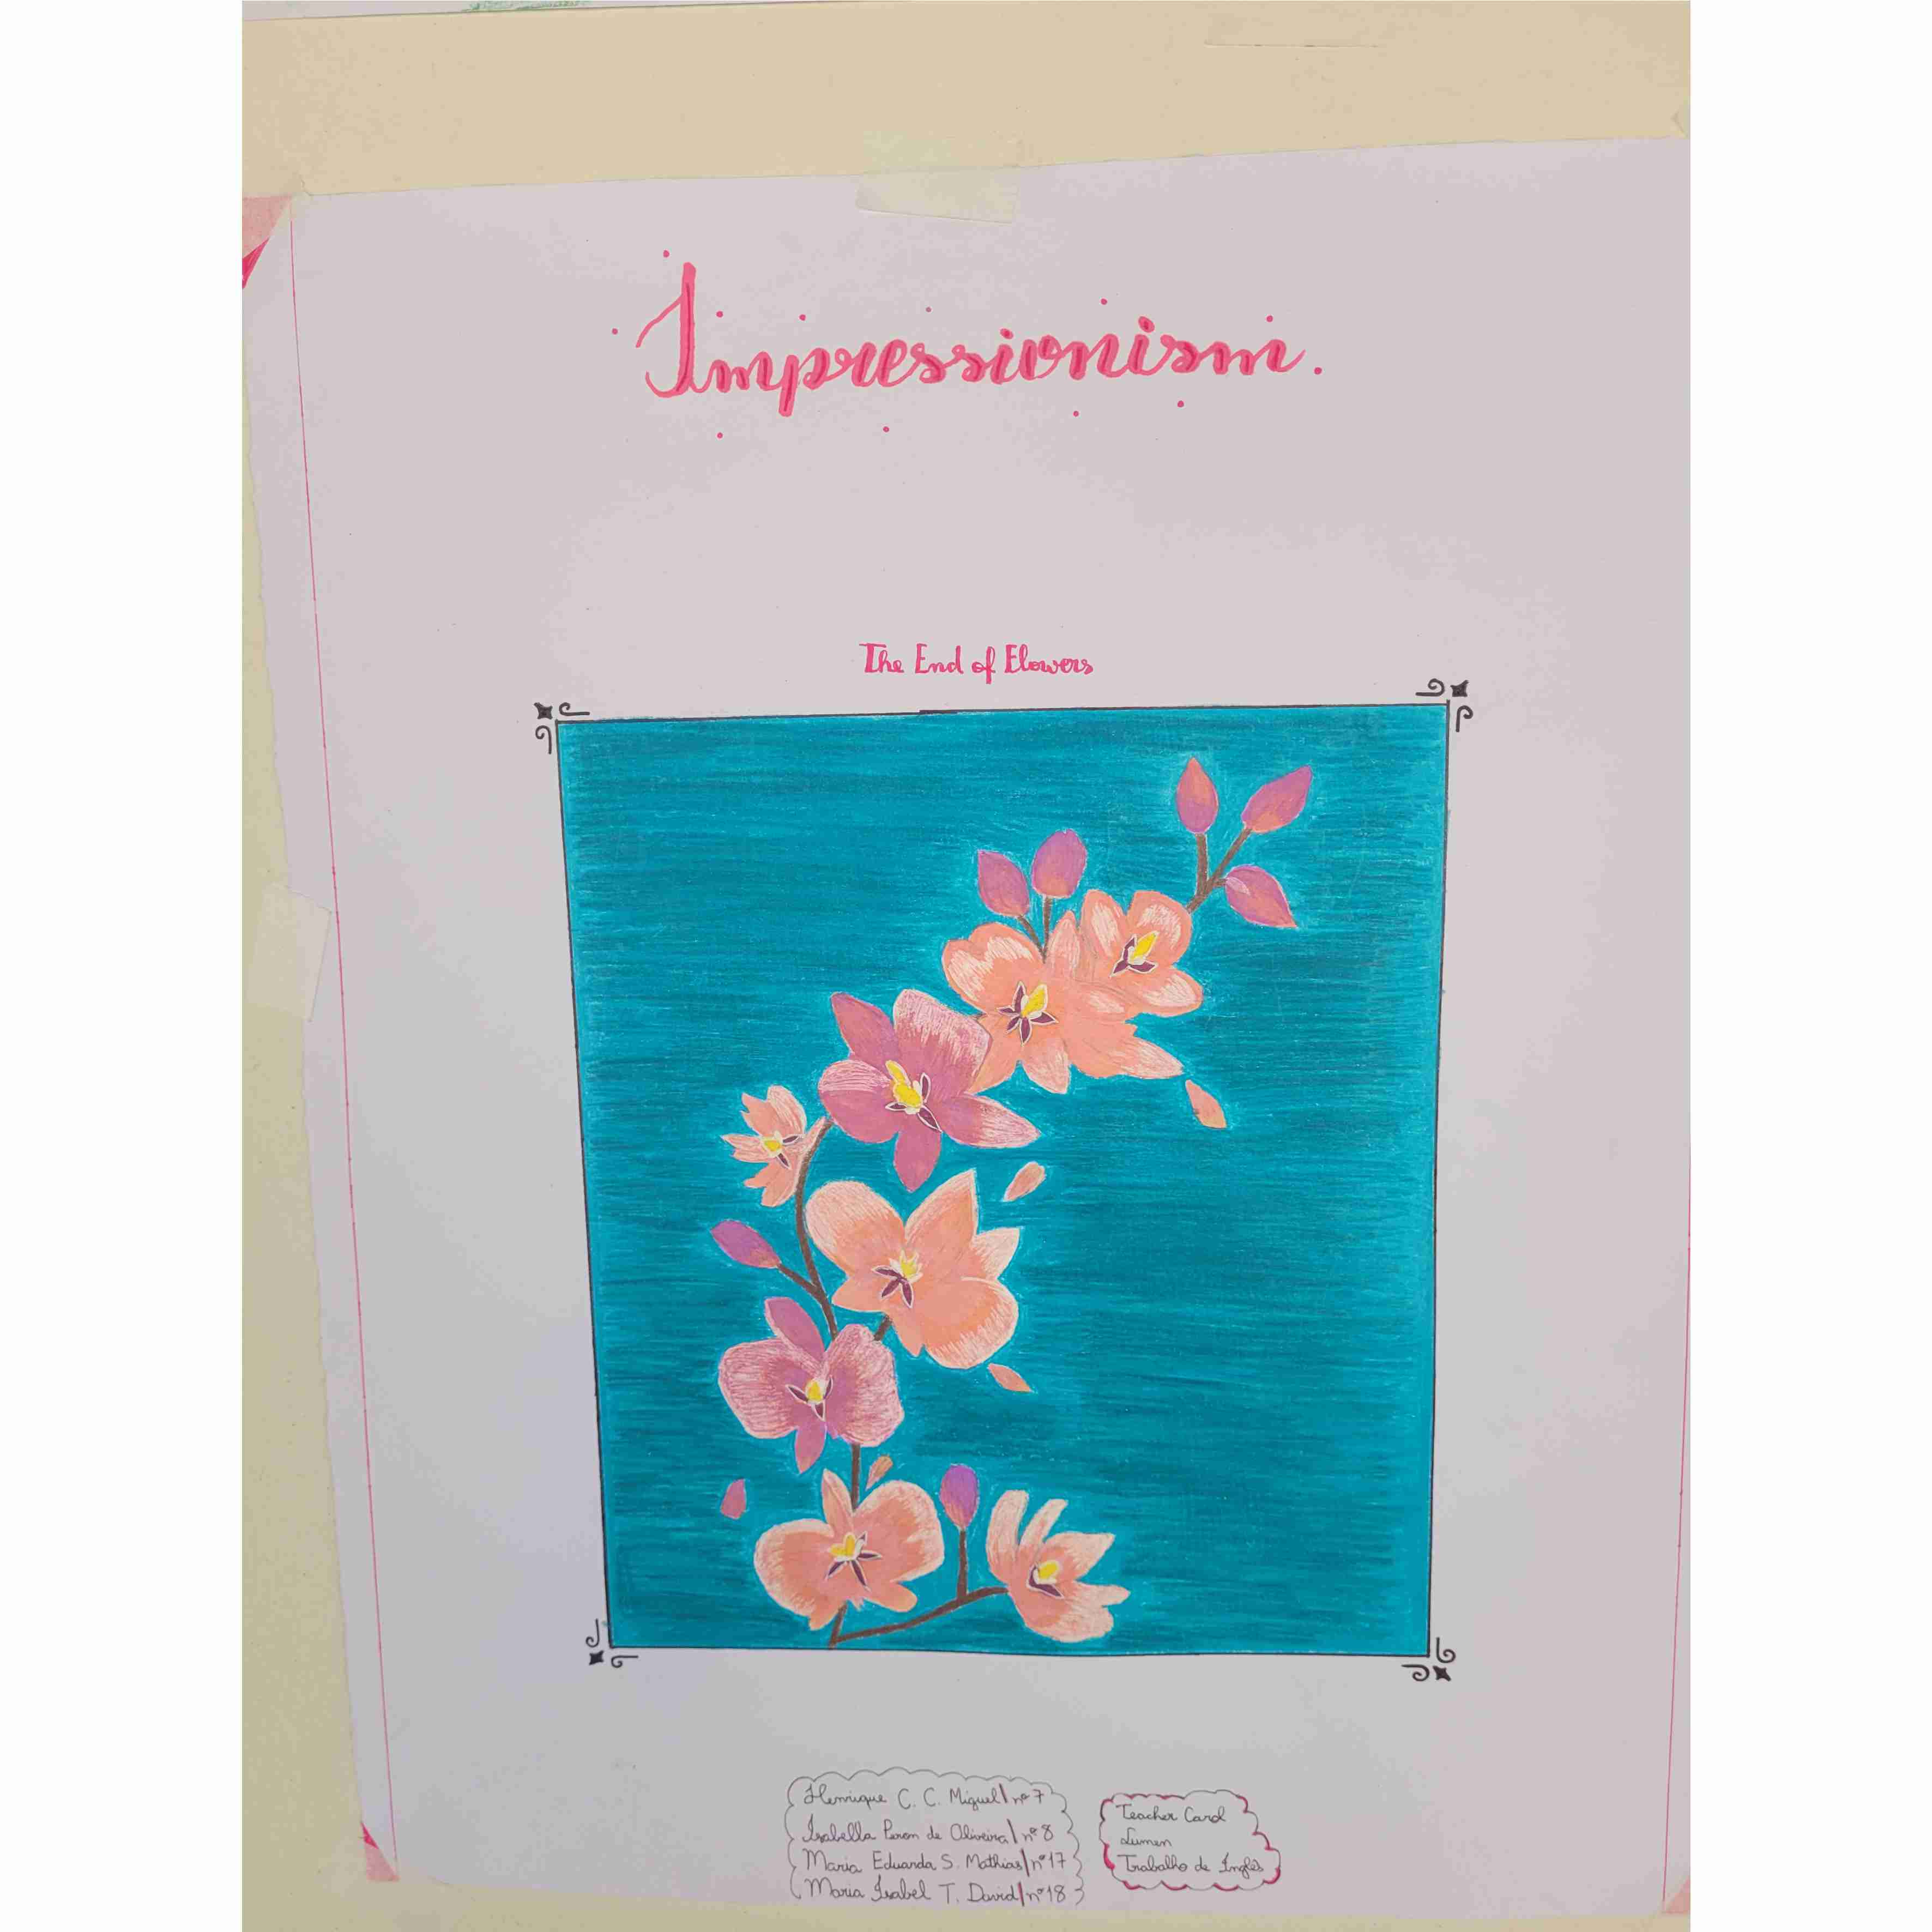 Impressionism.
The End of Flowers
Henrique C. C. Miguel | nº 7
Isabella Peron de Oliveira | nº 8
Maria Eduarda S. Mathias | nº 17
Maria Isabel T. David | nº 18
Teacher Carol
Lumen
Trabalho de Inglês